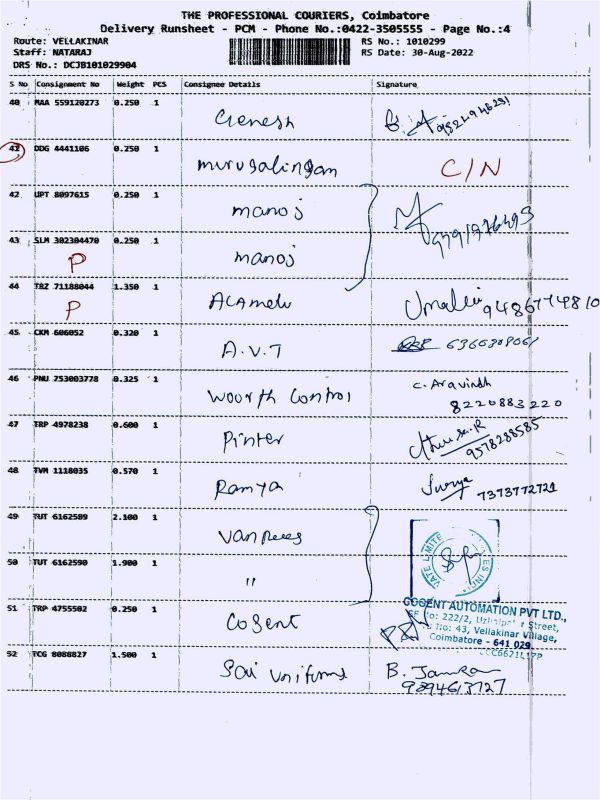 THE PROFESSIONAL COURIERS, Coimbatore
Delivery Runsheet - PCM - Phone No.:0422-3505555 - Page No.:4
Route: VELLAKINAR RS No.: 1010299
Staff: NATARAJ RS Date: 30-Aug-2022
DRS No.: DCJB101029904
S No Consignment No Weight PCS Consignee Details Signature
40 MAA 559120273 0.250 1 Genesh
41 DDG 4441106 0.250 1 murugalingam C/N
42 UPT 8097615 0.250 1 manoj
43 SLM 302304470 0.250 1 manoj
P
44 TBZ 71188044 1.350 1 Alamelu 9486774810
P
45 CKM 606052 0.320 1 A.V.T
46 PNU 753003778 0.325 1 Woorth Control C. Aravindh
8220883220
47 TRP 4978238 0.600 1 Pinter 9578288585
48 TVM 1118035 0.570 1 Ramya Surya 7373772721
49 TUT 6162589 2.100 1
50 TUT 6162590 1.900 1 "
51 TRP 4755502 0.250 1 Cogent
COGENT AUTOMATION PVT LTD.,
No: 222/2, Street,
No: 43, Vellakinar Village,
Coimbatore - 641 029
52 TCG 8088827 1.500 1 Sai Uniforms B.
9894613727